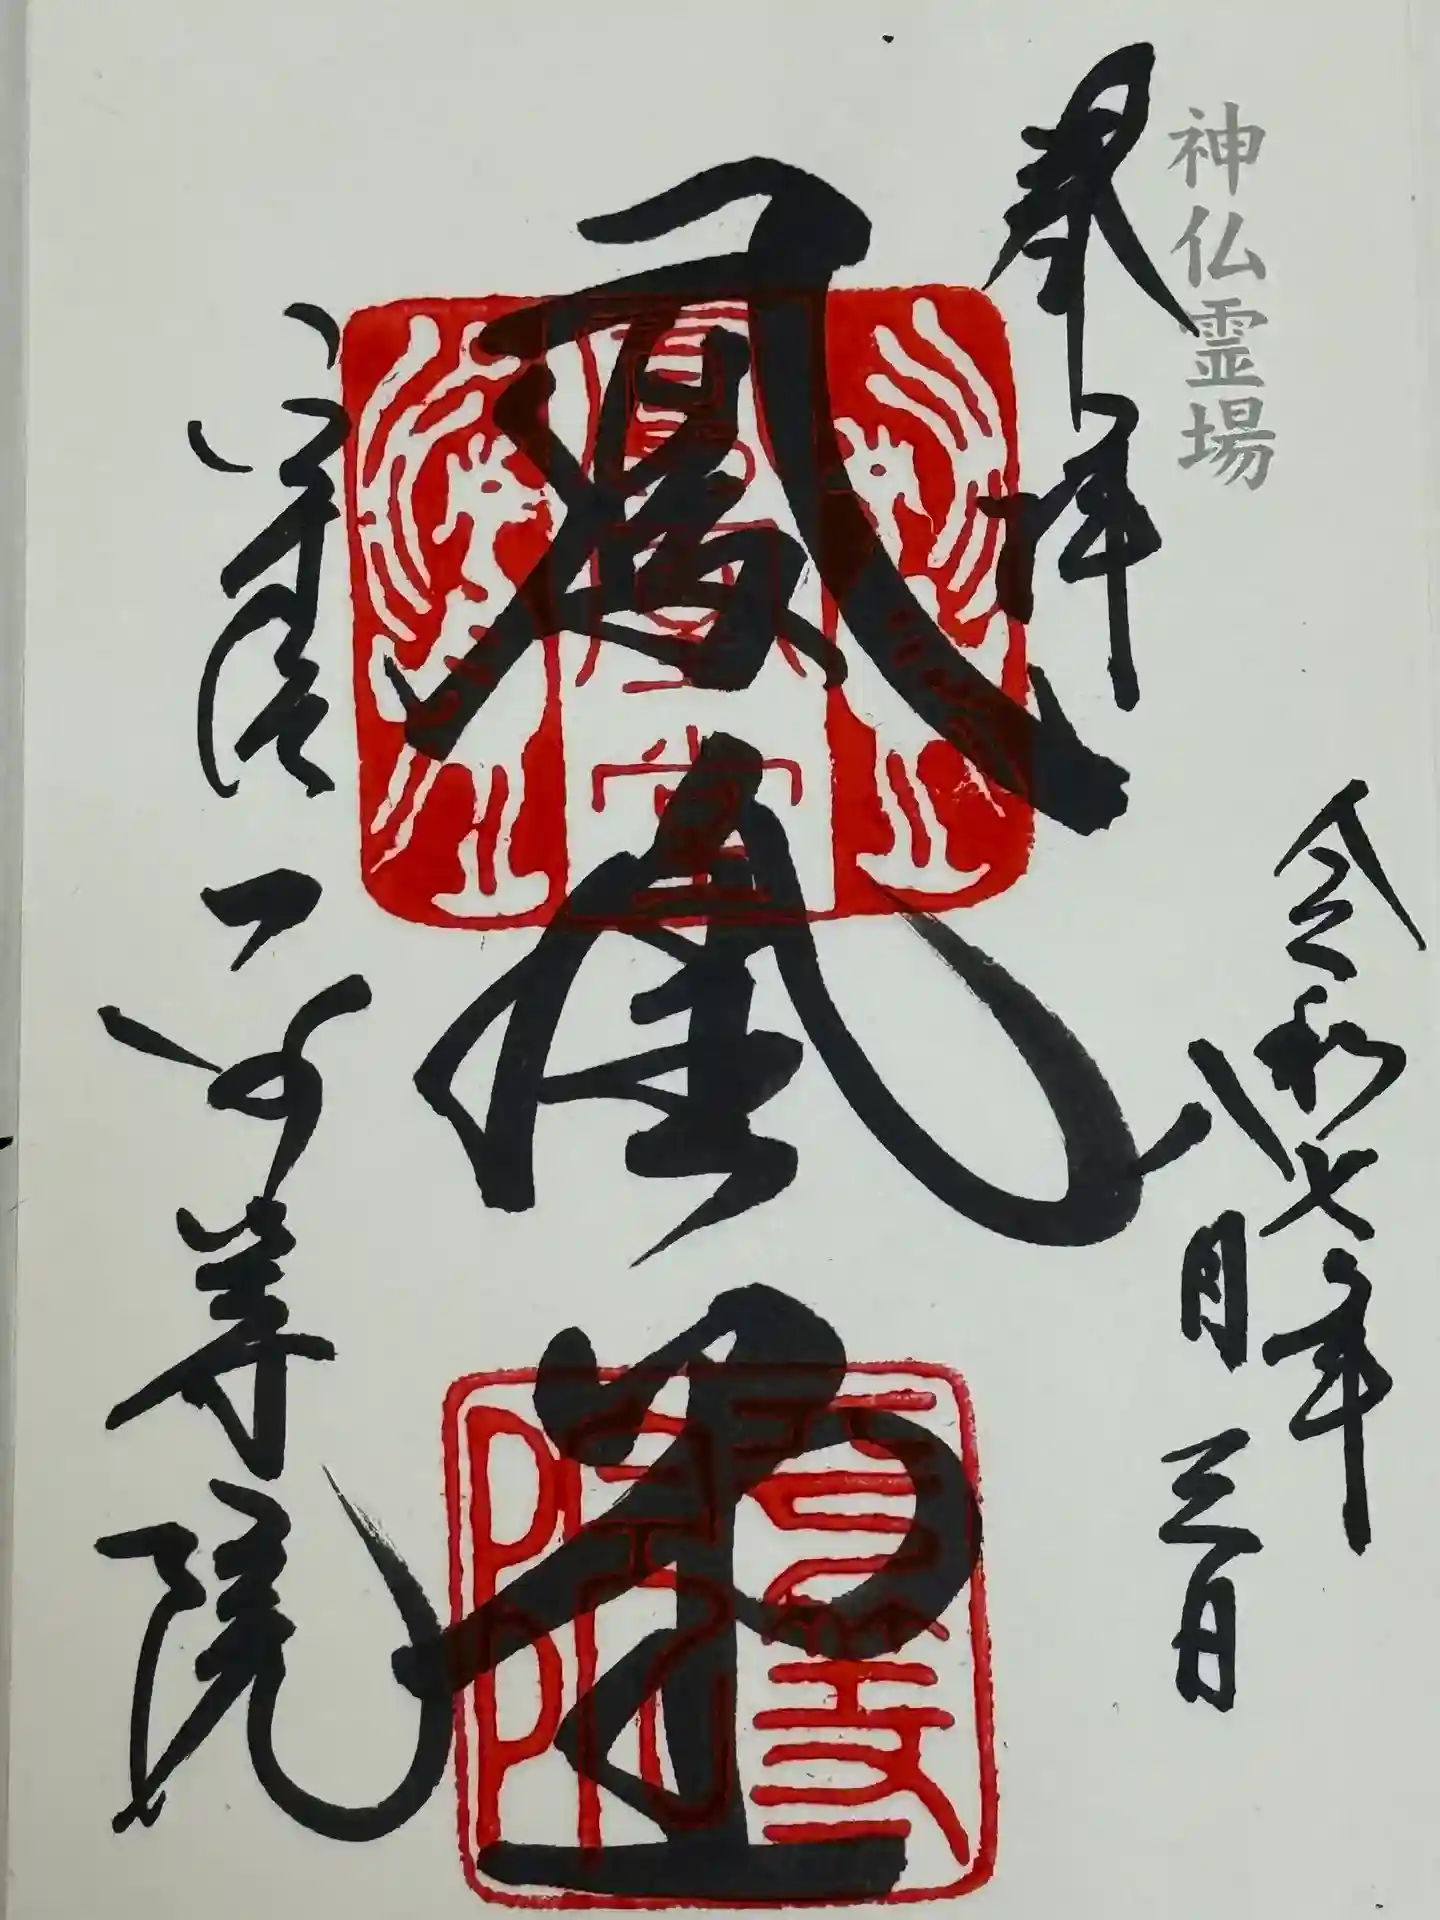 神仏霊場
奉拝
令和七年
八月三日
鳳凰堂
宇治
平等院